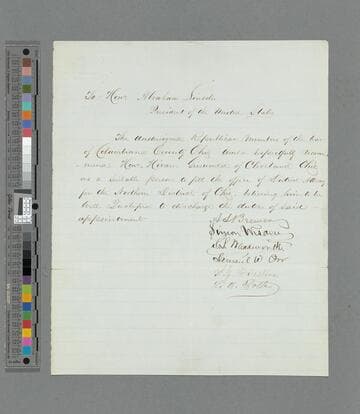 To Hon. Abraham Lincoln
President of the United States
The undersigned Republican members of the bar
of Columbiana County Ohio would respectfully recom
mend Hon. Hiram Griswold of Cleveland Ohio
as a suitable person to fill the office of District Atty
for the Northern District of Ohio, believing him to be
well qualified to discharge the duties of said
appointment
Brewer
Simon Wisden
S L Wadsworth
Samuel W Orr
Potter